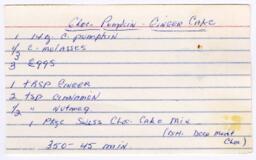 Choc. Pumpkin - Ginger Cake
1 Hdg C. pumpkin
1/3 C. molasses
3 Eggs
1 tasp Ginger
2 tsp Cinnamon
1/2 " Nutmeg
1 Pkge Swiss Choc. Cake Mix
(D.H. Deep Choc)
350 - 45 min